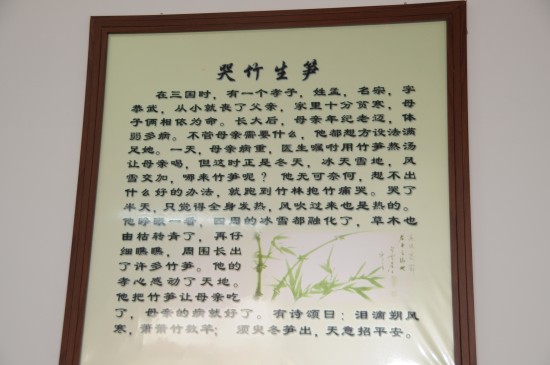 哭竹生笋
在三国时，有一个孝子，姓孟，名宗，字
恭武，从小就丧了父亲，家里十分贫寒，母
子俩相依为命。长大后，母亲年纪老迈，体
弱多病。不管母亲需要什么，他都想方设法满
足她。一天，母亲病重，医生嘱咐用竹笋熬汤
让母亲喝，但这时正是冬天，冰天雪地，风
雪交加，哪来竹笋呢？他无可奈何，想不出
什么好的办法，就跑到竹林抱竹痛哭。哭了
半天，只觉得全身发热，风吹过来也是热的。
他睁眼一看，四周的冰雪都融化了，草木也
由枯转青了，再仔
细瞧瞧，周围长出
了许多竹笋。他的
孝心感动了天地。
他把竹笋让母亲吃
了，母亲的病就好了。有诗颂曰：泪滴朔风
寒，萧萧竹数竿；须臾冬笋出，天意招平安。